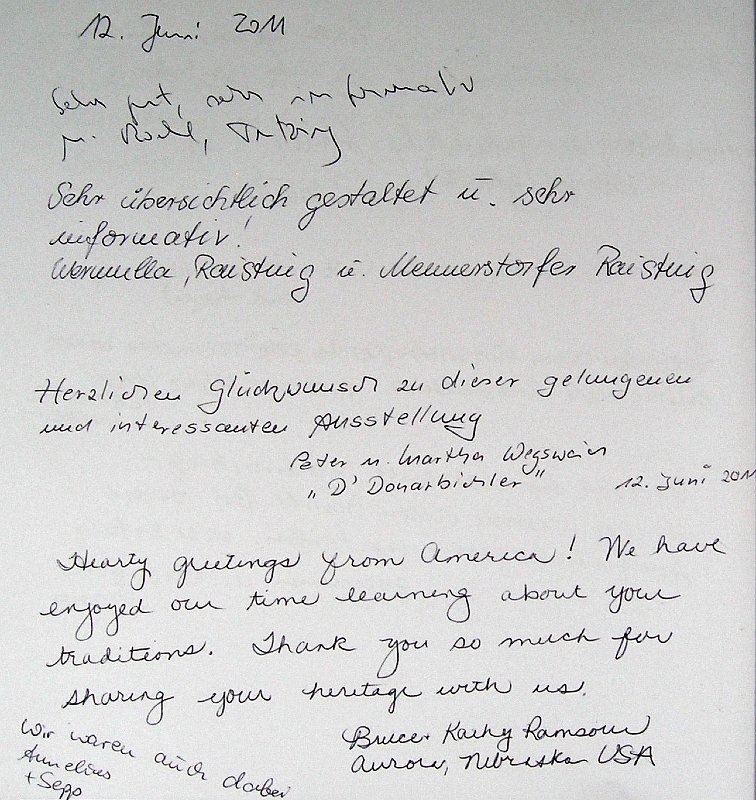 12. Juni 2011
Sehr gut, sehr informativ
Sehr übersichtlich gestaltet u. sehr
informativ!
Raisting u. Raisting
Herzlichen Glückwunsch zu dieser gelungenen
und interessanten Ausstellung
Peter u. Martha
"D' Donarbichler"
12. Juni 2011
Hearty greetings from America! We have
enjoyed our time learning about your
traditions. Thank you so much for
sharing your heritage with us.
Bruce + Kathy Ramsour
Aurora, Nebraska USA
Wir waren auch dabei
+ Sepp